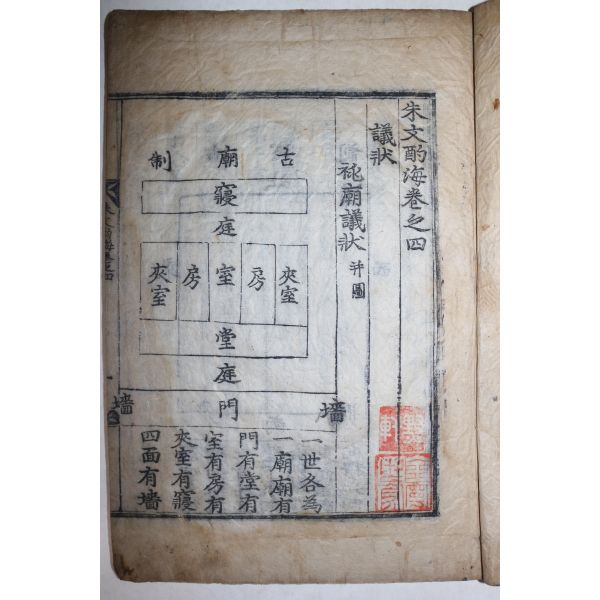 朱文酌海卷之四
議狀
祧廟議狀 并圖
古廟制
寢
庭
夾室 房 室 房 夾室
堂
庭
墻 門 墻
一世各為
一廟廟有
門有堂有
室有房有
夾室有寢
四面有墻